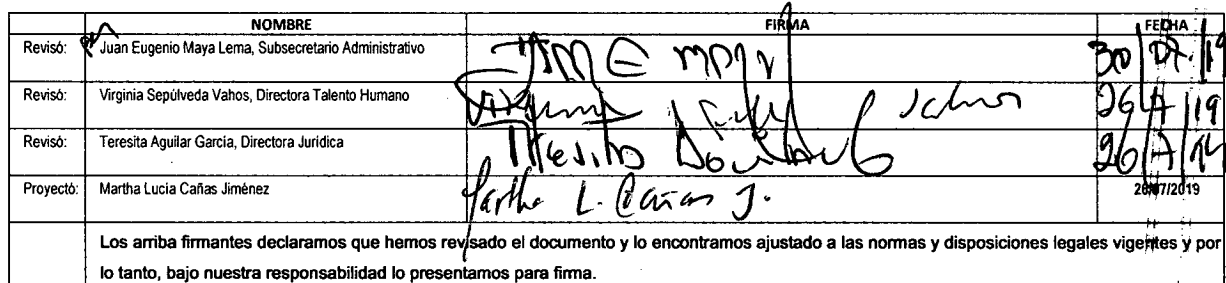 NOMBRE FIRMA FECHA
Revisó: Juan Eugenio Maya Lema, Subsecretario Administrativo 30 07 19
Revisó: Virginia Sepúlveda Vahos, Directora Talento Humano 26/7/19
Revisó: Teresita Aguilar García, Directora Jurídica Teresita 26/7/19
Proyectó: Martha Lucía Cañas Jiménez Martha L. Cañas J. 26/07/2019
Los arriba firmantes declaramos que hemos revisado el documento y lo encontramos ajustado a las normas y disposiciones legales vigentes y por
lo tanto, bajo nuestra responsabilidad lo presentamos para firma.